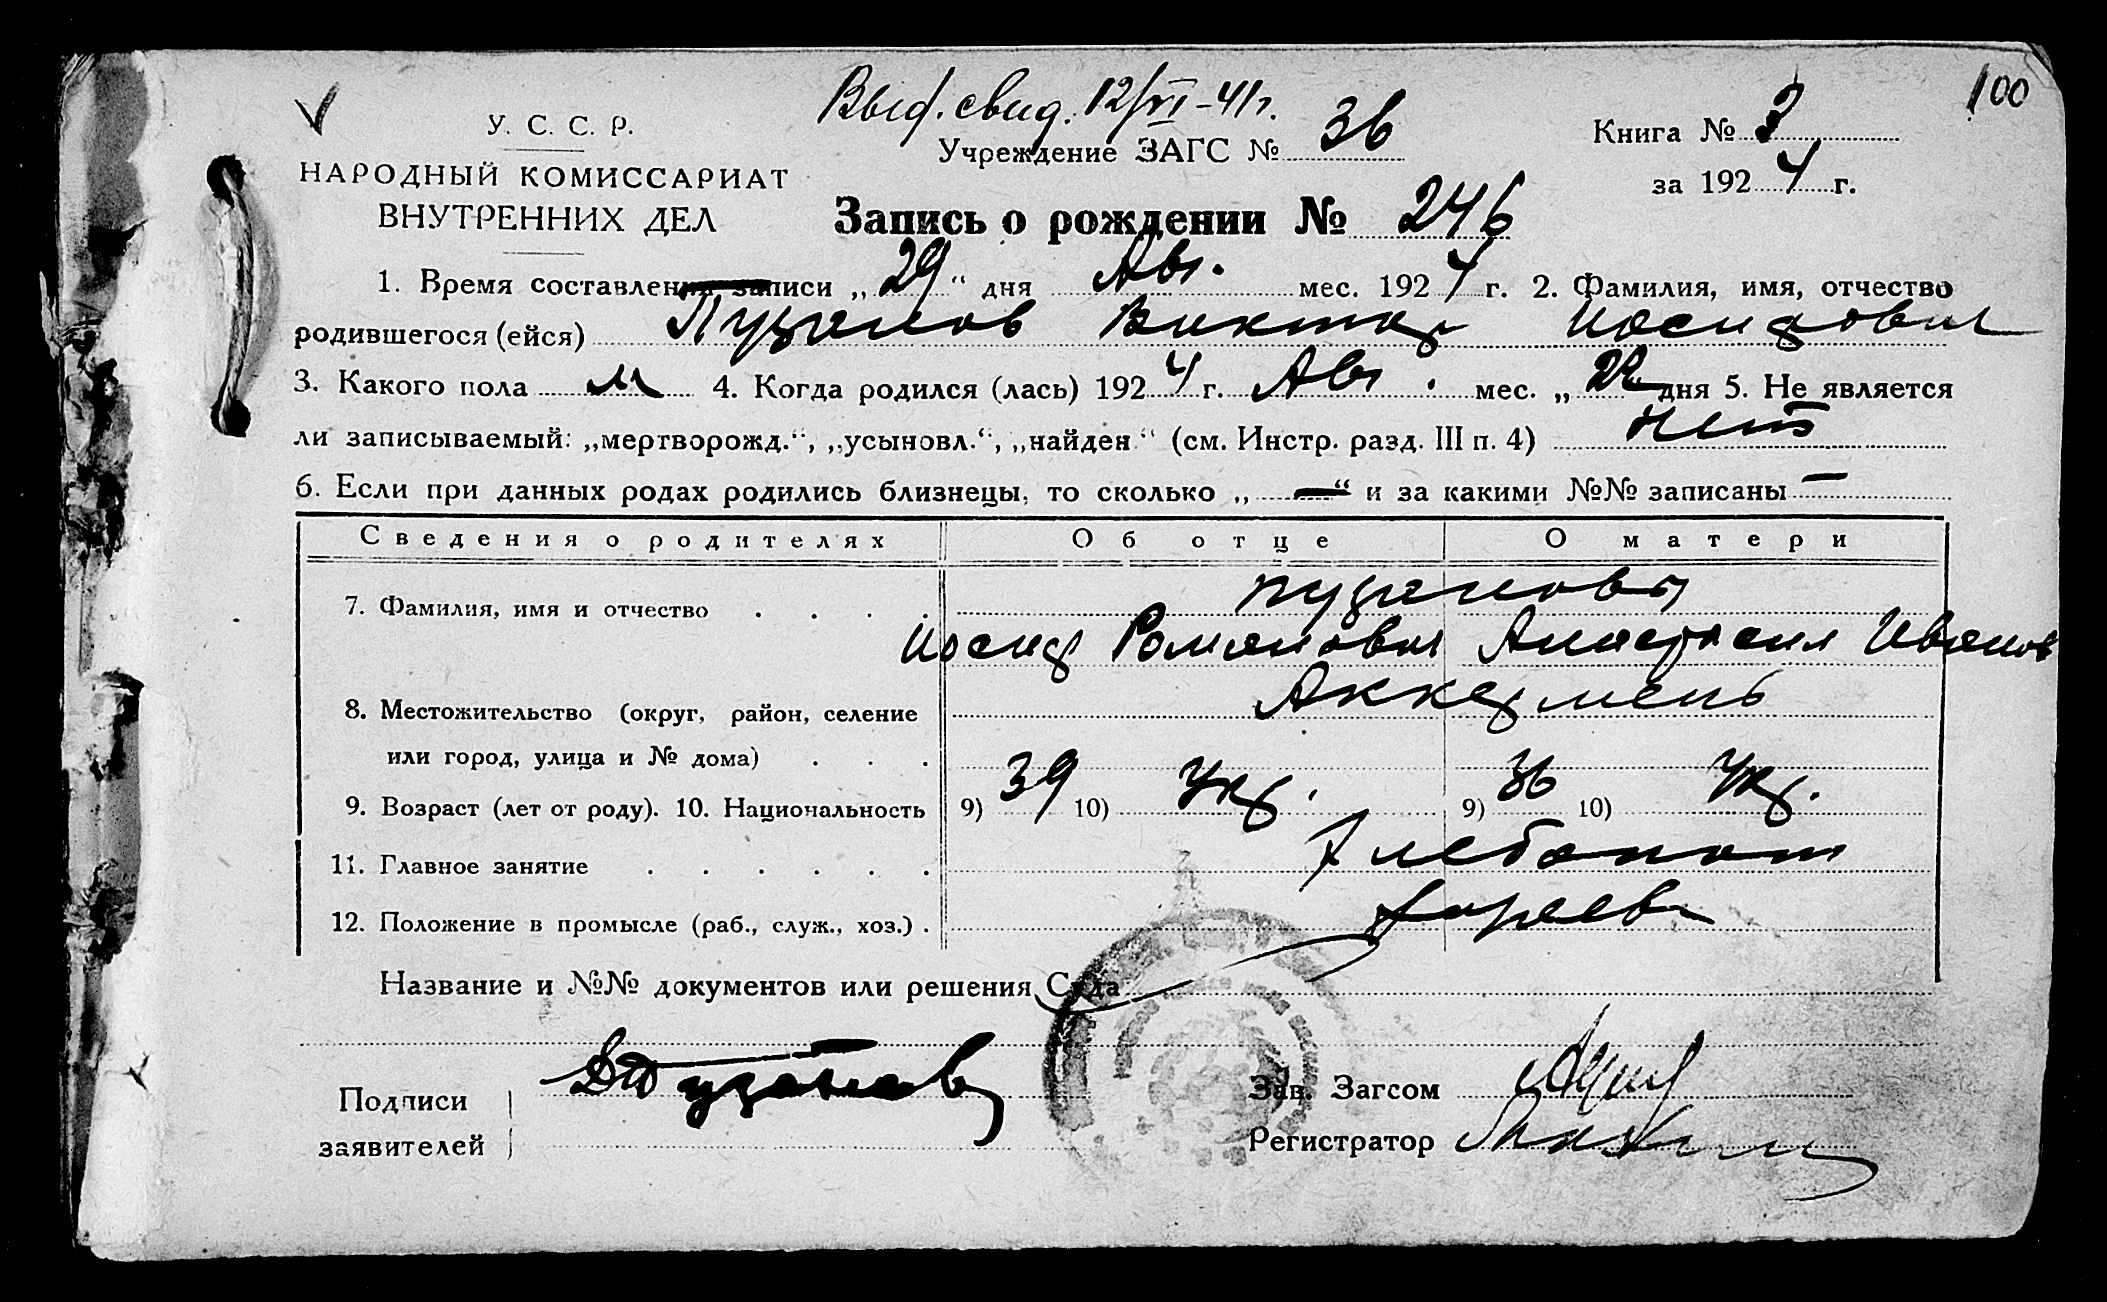 100
Выд. свид. 12/VI-41г.
У. С. С. Р.
НАРОДНЫЙ КОМИССАРИАТ
ВНУТРЕННИХ ДЕЛ
Учреждение ЗАГС № 36
Книга № 3
за 1924 г.
Запись о рождении № 246
1. Время составления записи „29“ дня Авг. мес. 1924 г. 2. Фамилия, имя, отчество
родившегося (ейся) Пузанов Виктор Иосифович
3. Какого пола м 4. Когда родился (лась) 1924 г. Авг. мес. „22 дня 5. Не является
ли записываемый: „мертворожд.“, „усыновл.“, „найден“ (см. Инстр. разд. III п. 4) нет
6. Если при данных родах родились близнецы, то сколько „—“ и за какими №№ записаны —
Сведения о родителях Об отце О матери
7. Фамилия, имя и отчество . . . . Пузановы
Иосиф Романович Анастасия Иванов
8. Местожительство (округ, район, селение Аккермень
или город, улица и № дома) . . .
9. Возраст (лет от роду). 10. Национальность 9) 39 10) Укр. 9) 36 10) Укр.
11. Главное занятие . . . . . . Хлебопаш
12. Положение в промысле (раб., служ., хоз.) .
Название и №№ документов или решения Суда
Подписи
заявителей
Пузанов
Зав. Загсом
Регистратор